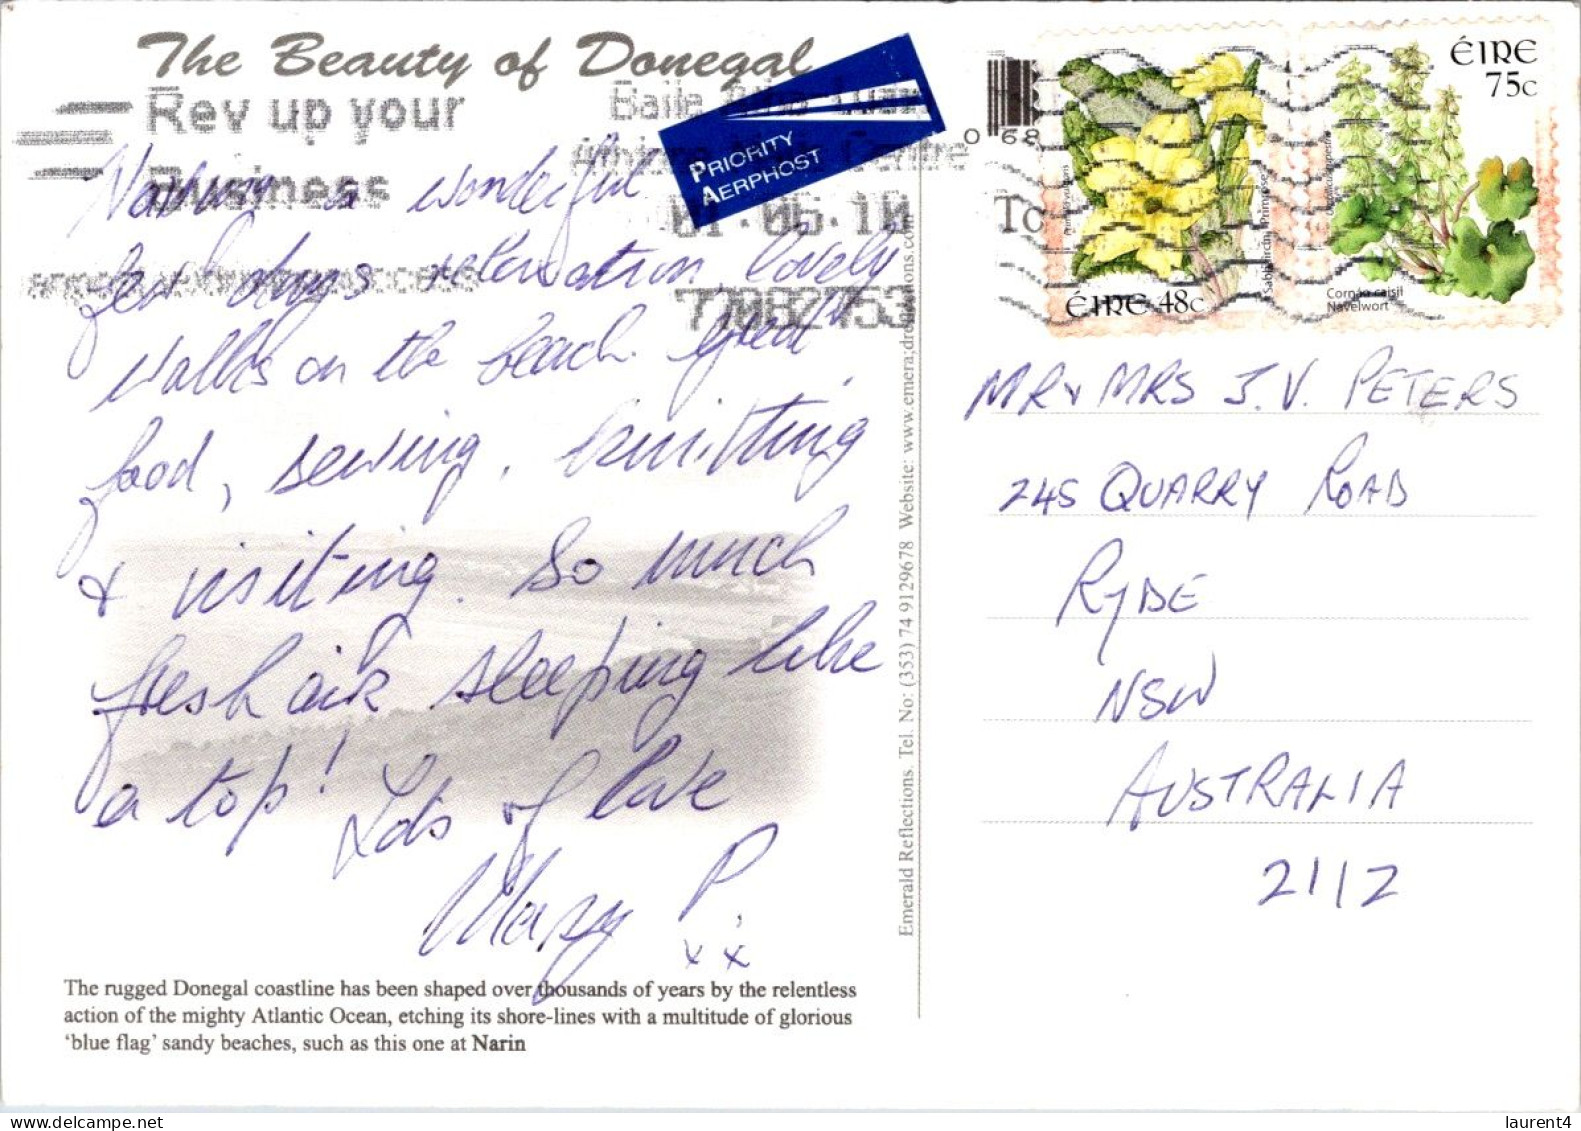 The Beauty of Donegal
Rev up your
Business
Baile Átha Luain
Athlone Mail Centre
01.06.10
PRIORITY
AERPHOST
Having a wonderful
few days relaxation, lovely
walks on the beach. great
food, sewing, knitting
& visiting. So much
fresh air sleeping like
a top! Lots of love
Mary P.
x x
The rugged Donegal coastline has been shaped over thousands of years by the relentless
action of the mighty Atlantic Ocean, etching its shore-lines with a multitude of glorious
'blue flag' sandy beaches, such as this one at Narin
Emerald Reflections. Tel. No: (353) 74 9129678 Website:
068
To
ÉIRE 48c
Primula vulgaris
Sabhaircín Primrose
ÉIRE
75c
Cornán caisil
Navelwort
MR & MRS J.V. PETERS
245 QUARRY ROAD
RYDE
NSW
AUSTRALIA
2112
laurent4